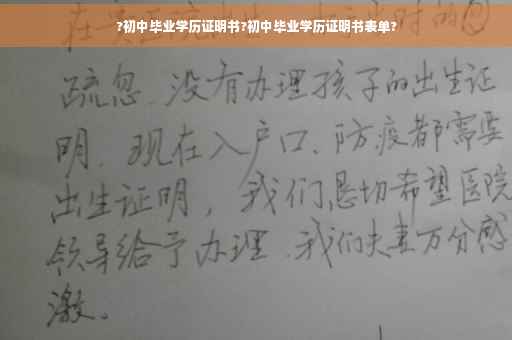 ?初中毕业学历证明书?初中毕业学历证明书表单?
时的
疏忽、没有办理孩子的出生证
明、现在入户口、防疫都需要
出生证明，我们恳切希望医院
领导给予办理、我们夫妻万分感
激。